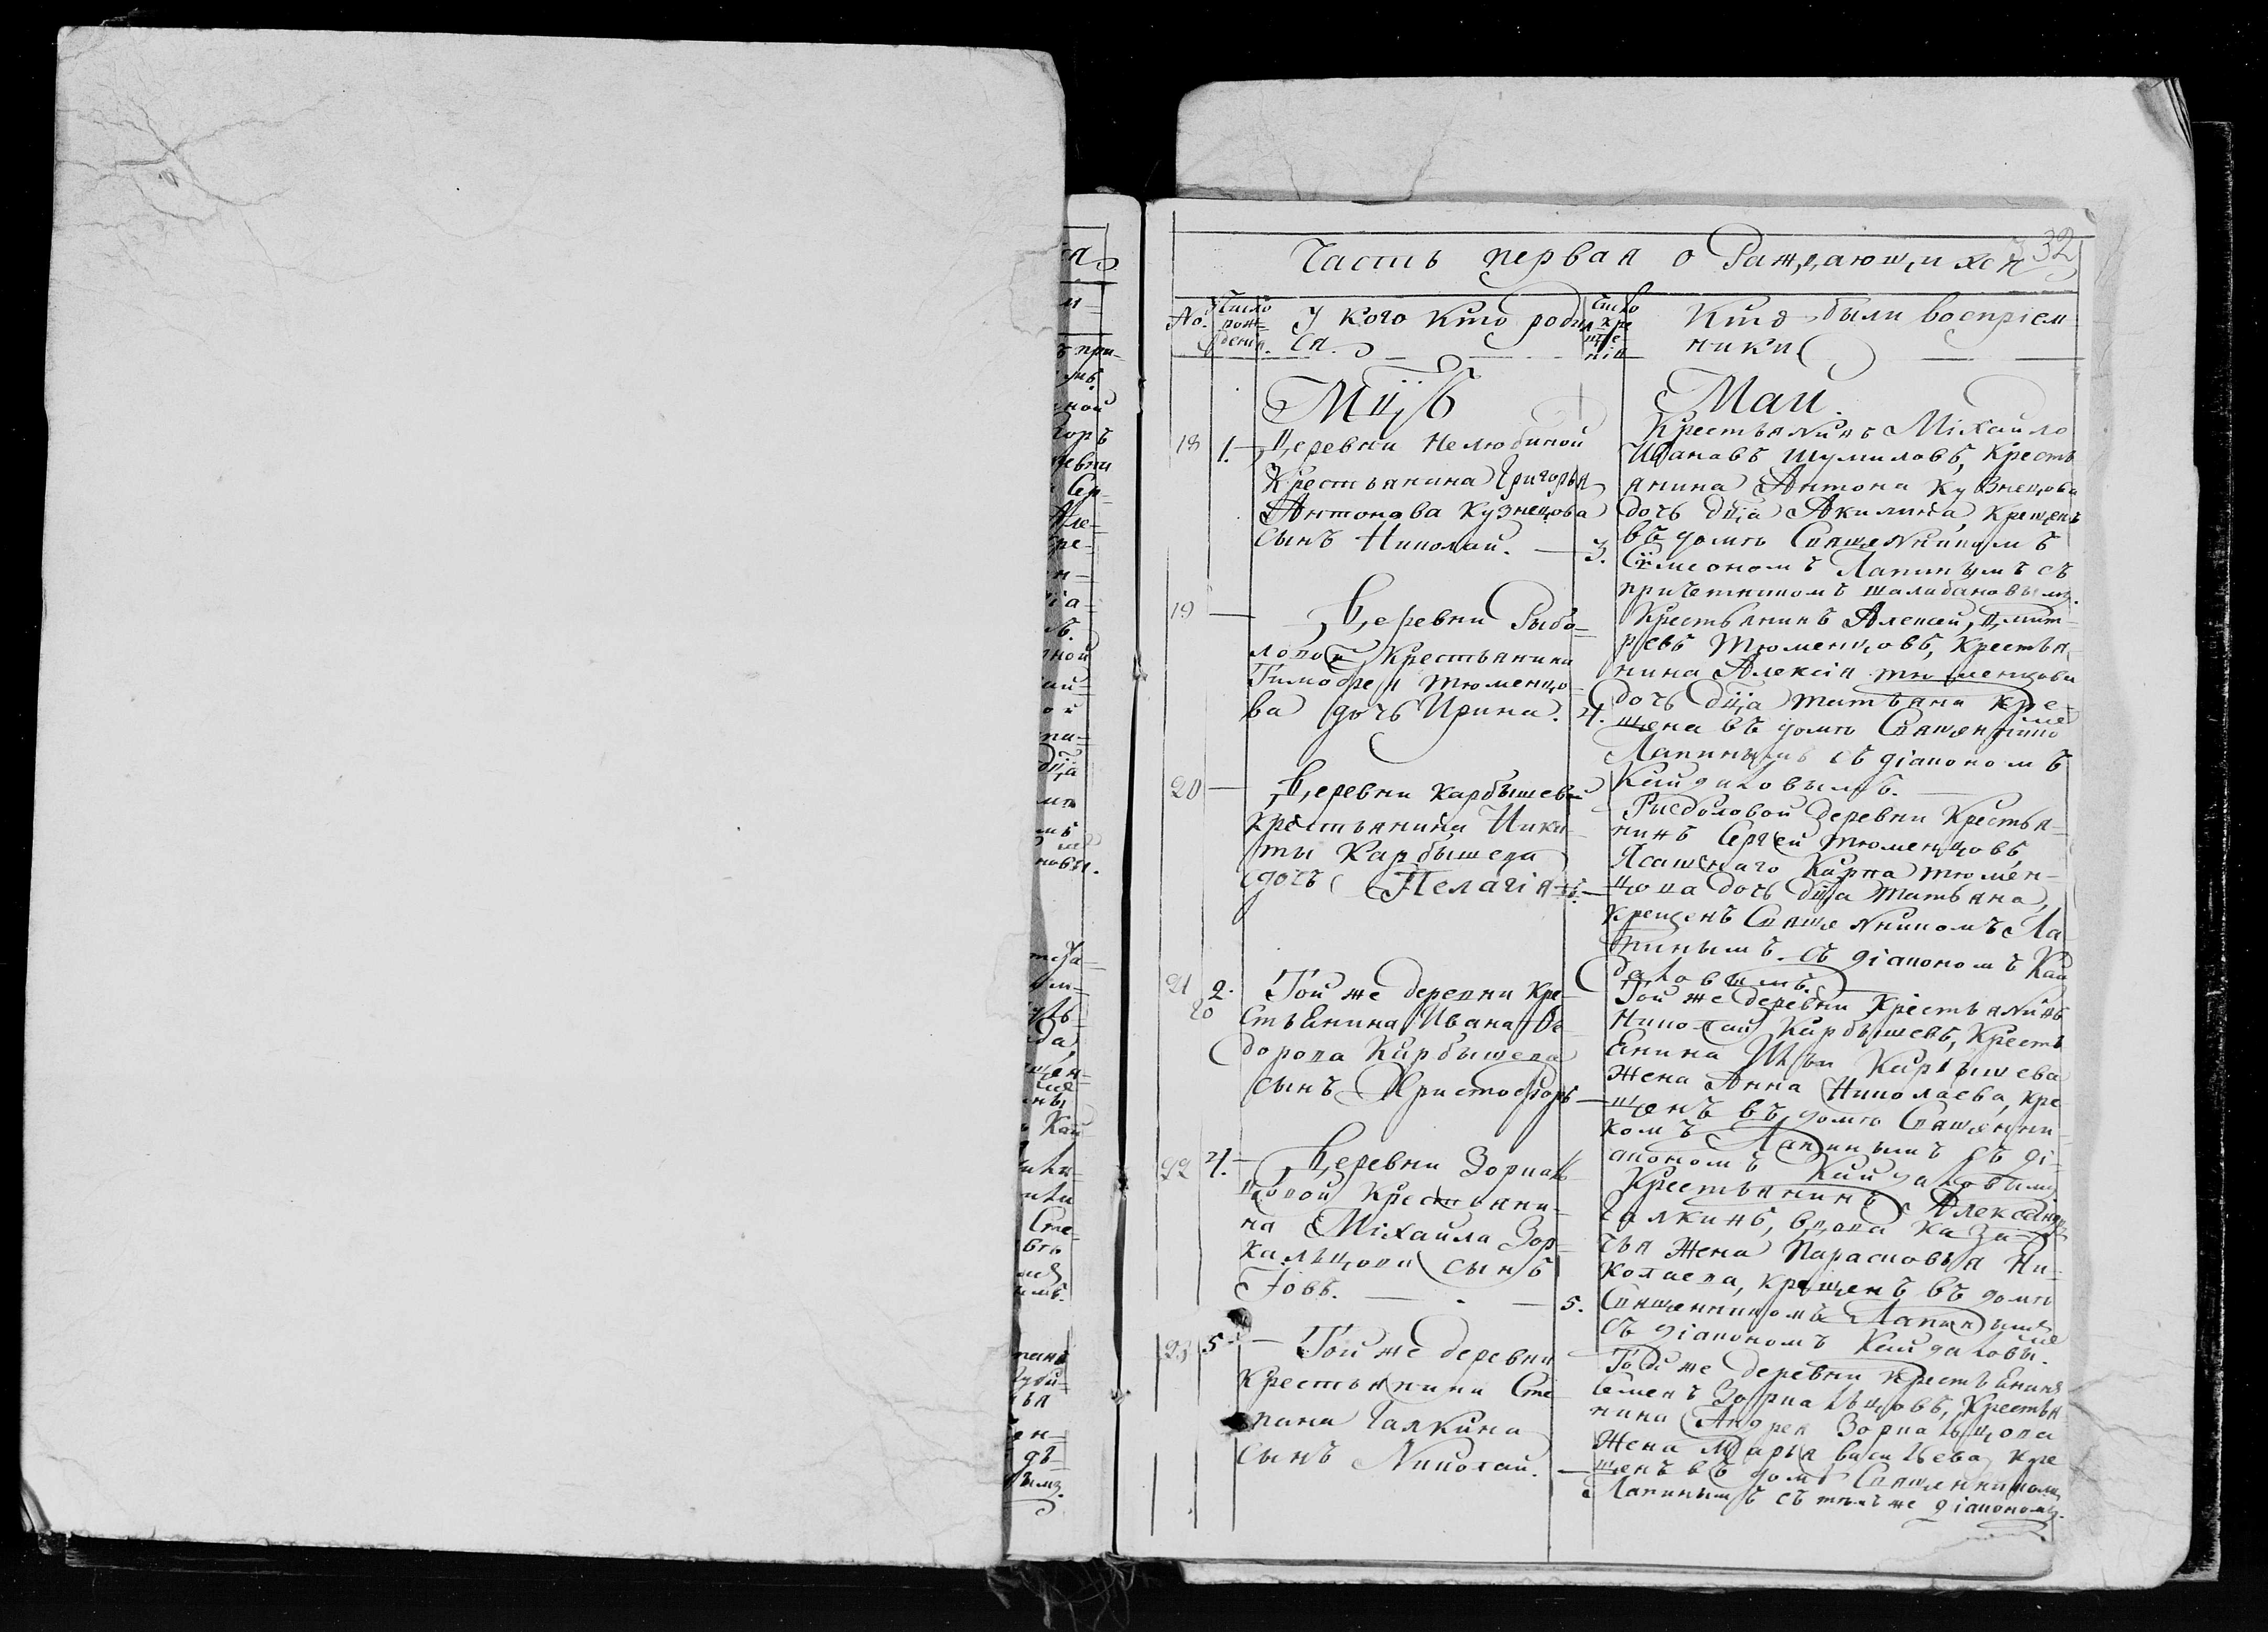 32
Часть первая о Раждающихся
No.
Число рожденія.
У кого кто родился.
Число крещенія
Кто были воспріемники
Мцъ
Маи.
18
1.
Деревни Нелюбиной
Крестьянина Григорья
Антонова Кузнецова
сынъ Николаи.
3.
Крестьянинъ Міхайло
Ивановъ Шумиловъ, Кресть
янина Антона Кузнецова
дочь дцa Акилина, крещенъ
въ домѣ Священникомъ
Сѵмеономъ Лапинымъ съ
причетникомъ Шалабановымъ.
19
Деревни Рыбо-
ловой Крестьянина
Тимофея Тюменцо-
ва дочь Ирина.
4.
Крестьянинъ Алексей Дмит-
ревъ Тюменцовъ, Крестья
нина Алексія Тюменцова
дочь дцa Татьяна кре-
щена въ домѣ Священнико
Лапинымъ съ діакономъ
Кайдаловымъ.
20
Деревни Карбышевой
крестьянина Ники-
ты Карбышева
дочь Пелагія
Рыболовой деревни Крестья-
нинъ Сергей Тюменцовъ,
Ясашнаго Карпа Тюмен-
цова дочь дцa Татьяна,
крещенъ Священникомъ Ла-
пинымъ съ діакономъ Кай
даловымъ.
21
2.
20
Той же деревни Кре-
стьянина Ивана Фе-
дорова Карбышева
сынъ Христофоръ
Той же деревни Крестьянинъ
Николай Карбышевъ, Кресть
янина Ильи Карбышева
жена Анна Николаева, кре
щенъ въ домѣ Священни-
комъ Лапинымъ съ ді-
акономъ Кайдаловымъ
22
4.
Деревни Зоркаль
цовой Крестьяни-
на Міхайла Зор-
кальцова сынъ
Іовъ.
5.
Крестьянинъ Александръ
Галкинъ, вдова каза-
чья жена Парасковья Ни-
колаева, крещенъ въ домѣ
Священникомъ Лапинымъ
съ діакономъ Кайдаловы.
23
5.
Той же деревни
Крестьянина Сте
пана Галкина
сынъ Николай.
Той же деревни крестьянинъ
Семенъ Зоркальцовъ, Крестья
нина Андрея Зоркальцова
жена Марья Васильева, кре
щенъ въ домѣ Священникомъ
Лапинымъ съ тѣмъ же діакономъ.